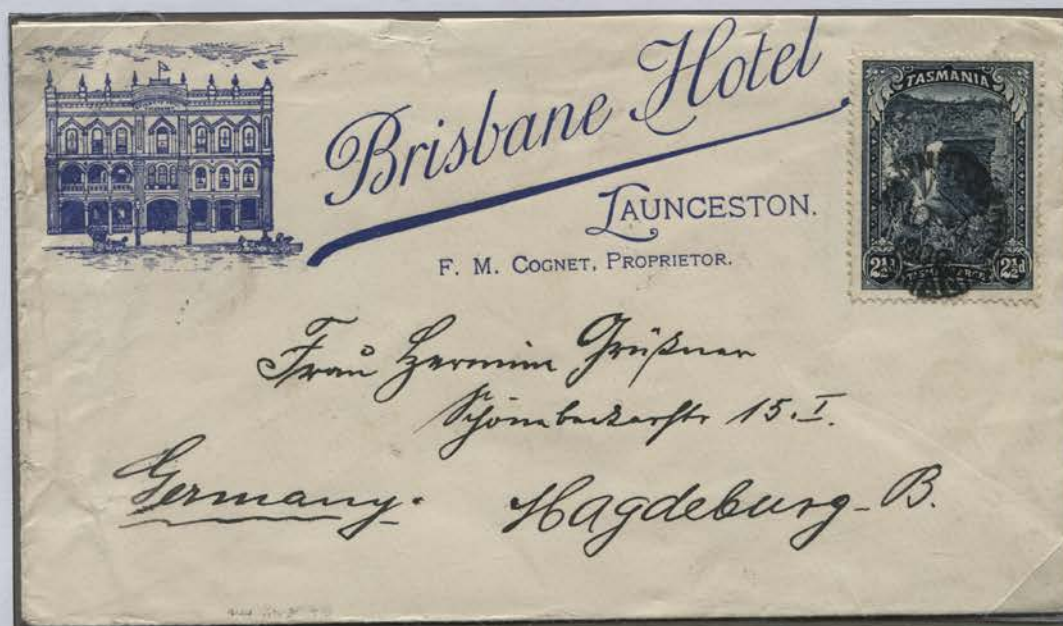 Brisbane Hotel
LAUNCESTON.
F. M. COGNET, PROPRIETOR.
TASMANIA
2½d 2½d
Frau Hermine Grüßner
Schönebeckerstr 15.I.
Germany. Magdeburg-B.